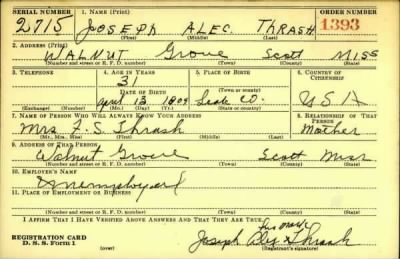 SERIAL NUMBER 1. NAME (Print) ORDER NUMBER
2715 JOSEPH ALEC THRASH 1393
(First) (Middle) (Last)
2. ADDRESS (Print)
WALNUT Grove Scott MISS
(Number and street or R. F. D. number) (Town) (County) (State)
3. TELEPHONE 4. AGE IN YEARS 5. PLACE OF BIRTH 6. COUNTRY OF CITIZENSHIP
31
DATE OF BIRTH (Town or county)
April 13 1909 USA
(Exchange) (Number) (Mo.) (Day) (Yr.) (State or country)
7. NAME OF PERSON WHO WILL ALWAYS KNOW YOUR ADDRESS 8. RELATIONSHIP OF THAT PERSON
Mrs F. S. Thrash Mother
(Mr., Mrs., Miss) (First) (Middle) (Last)
9. ADDRESS OF THAT PERSON
Walnut Grove Scott Miss
(Number and street or R. F. D. number) (Town) (County) (State)
10. EMPLOYER'S NAME
Unemployed
11. PLACE OF EMPLOYMENT OR BUSINESS
(Number and street or R. F. D. number) (Town) (County) (State)
I AFFIRM THAT I HAVE VERIFIED ABOVE ANSWERS AND THAT THEY ARE TRUE.
his mark
REGISTRATION CARD Joseph Alex Thrash
D. S. S. Form 1 (over) (Registrant's signature)